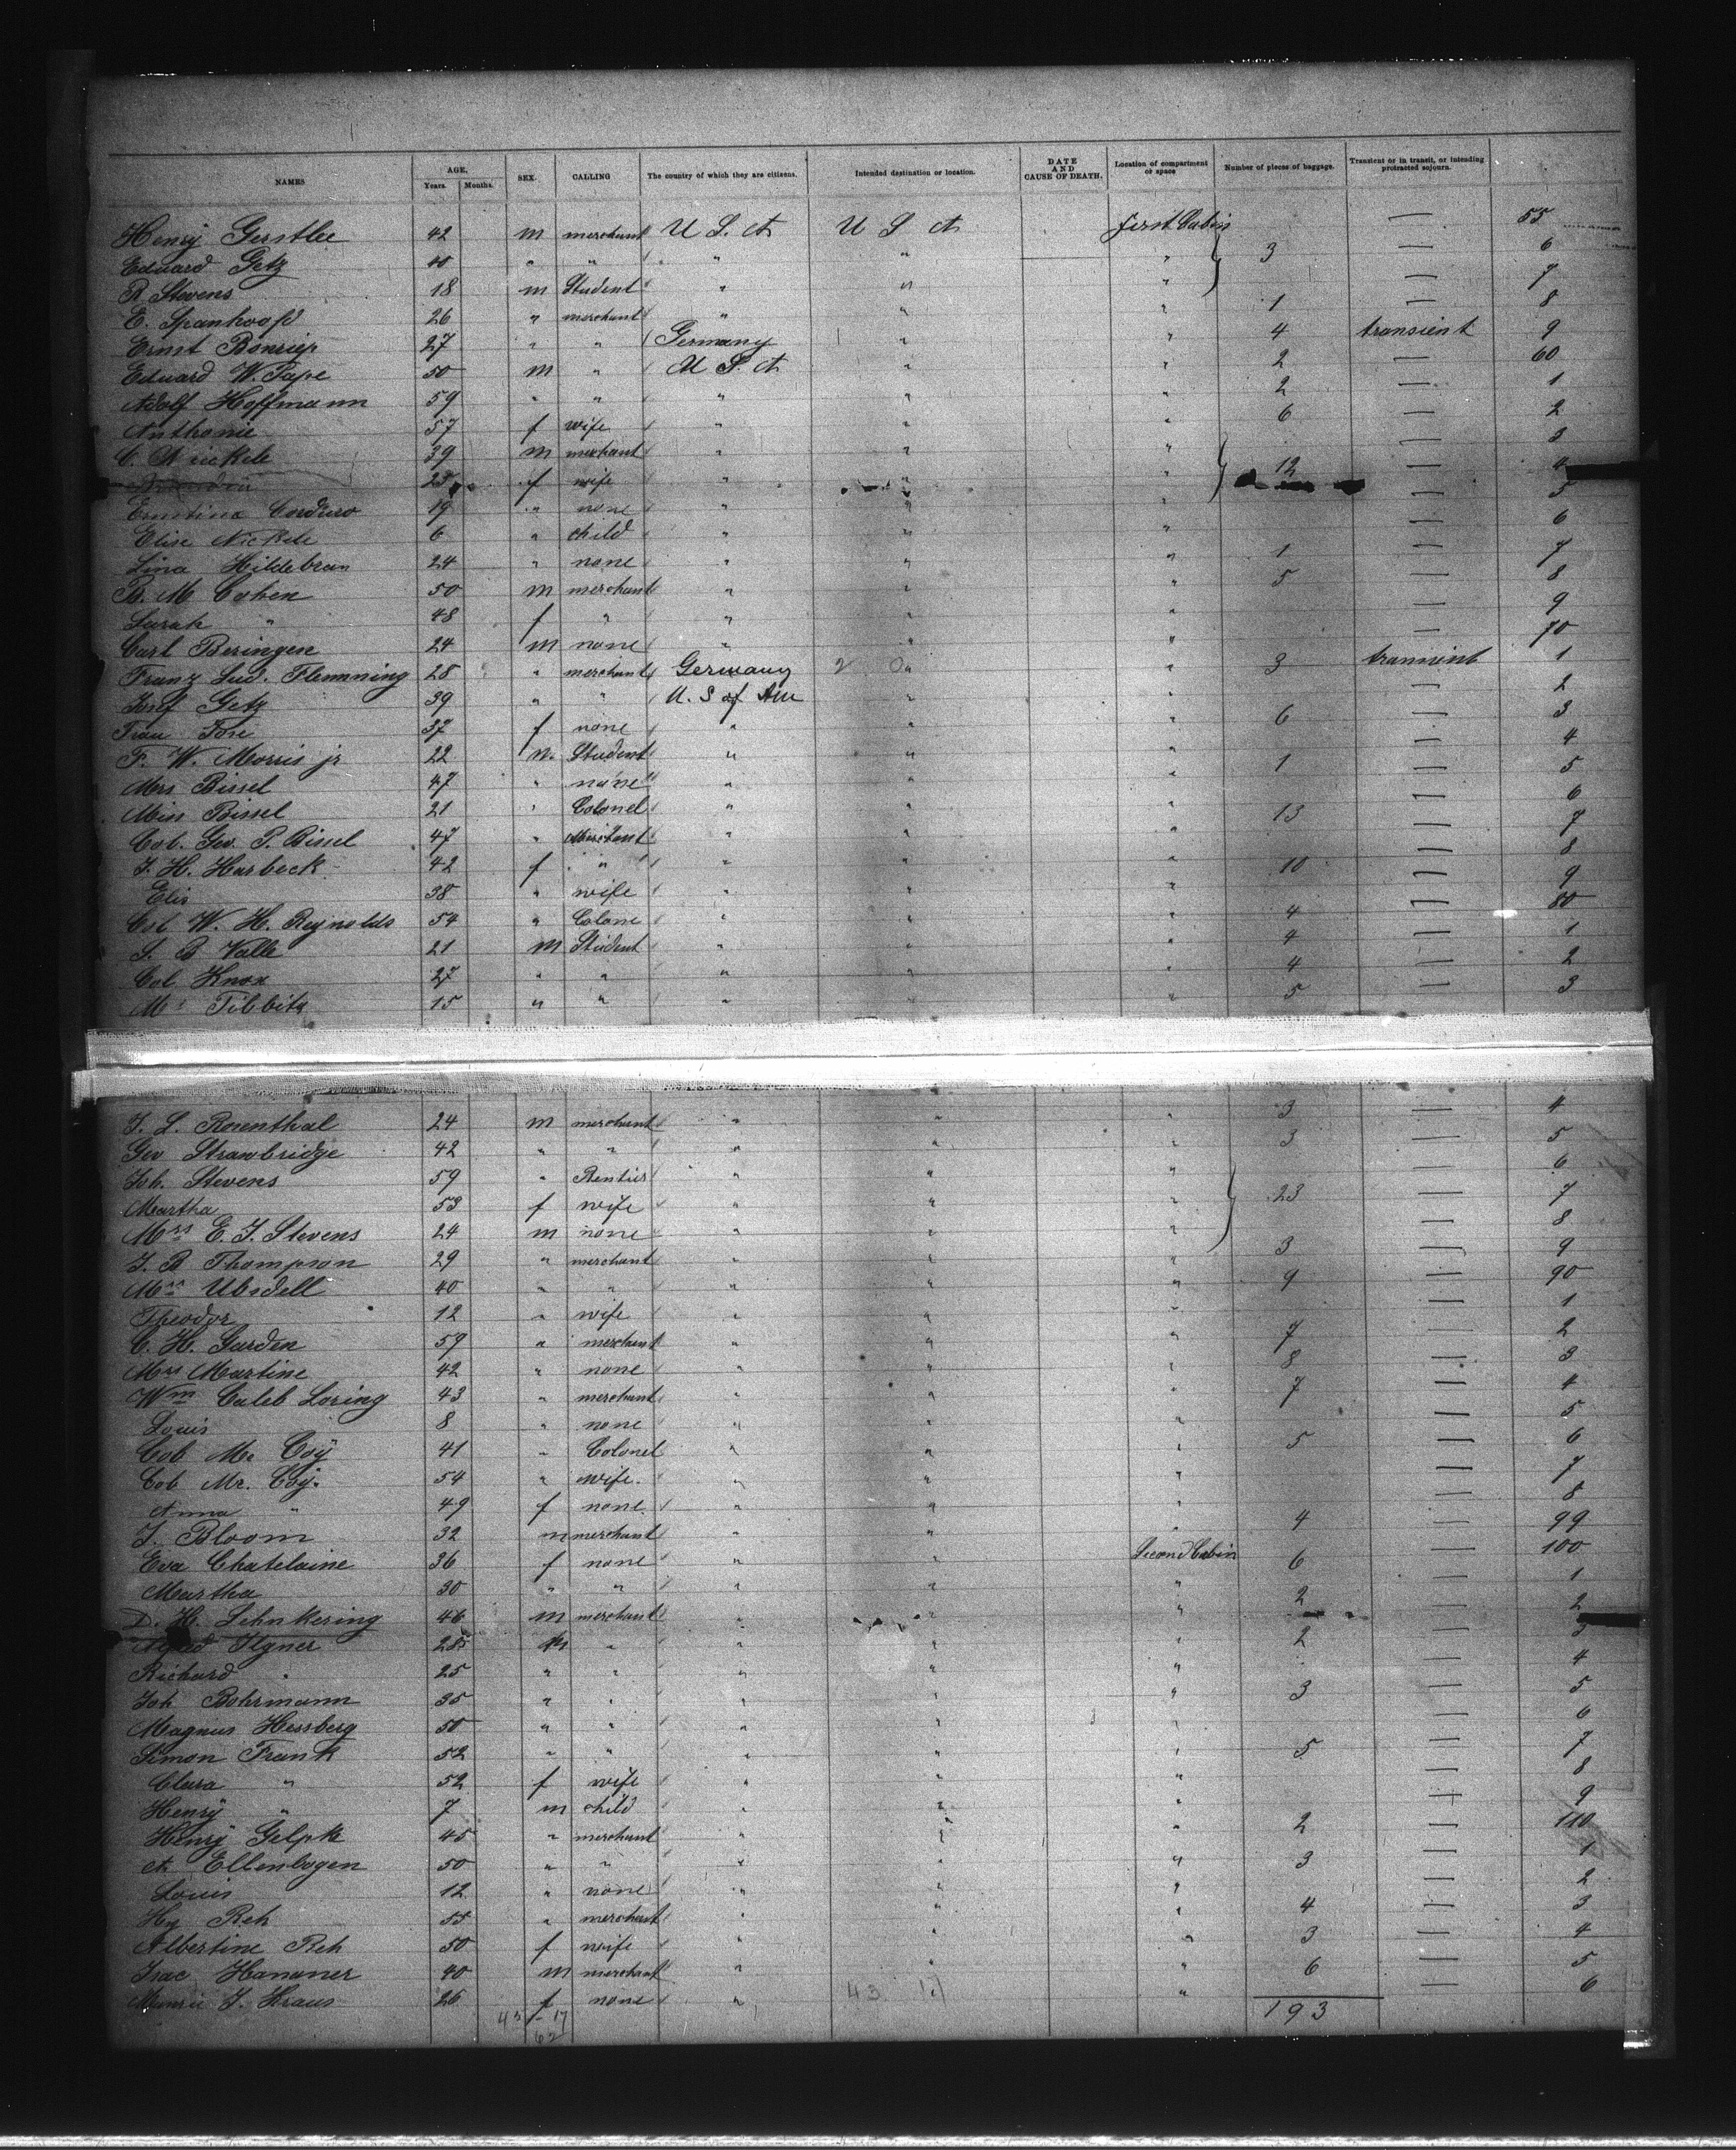 NAMES AGE, Years. Months. SEX. CALLING The country of which they are citizens. Intended destination or location. DATE AND CAUSE OF DEATH. Location of compartment or space Number of pieces of baggage. Transient or in transit, or intending protracted sojourn.
Henry Gerstlee 42 m merchant U S. A U S A First Cabin — 55
Eduard Getz 40 " " " " " 3 — 6
R Stevens 18 m Student " " " — 7
E. Spankoofd 26 " merchant " " " 1 — 8
Ernst Bonriep 27 " " Germany 1 " " 4 transient 9
Eduard W. Pape 50 m " U S. A " " 2 — 60
Adolf Hoffmann 59 " " " " " 2 — 1
Anthonie 57 f wife " " " 6 — 2
C. Nickele 39 m merchant " " " — 3
25 f wife " " " 12 — 4
Ernstina Corduro 19 " none " " " — 5
Elise Nickele 6 " child " " " — 6
Lina Hildebran 24 " none " " " 1 — 7
B. M Cohen 50 m merchant " " " 5 — 8
Sarah " 48 f " " " " — 9
Carl Beringen 24 m none " " " — 70
Franz Lud. Flemming 28 " merchant Germany 2 " " 3 transient 1
Josef Getz 39 " " U. S of Am " " — 2
Frau Fore 37 f none " " " 6 — 3
F. W. Morris jr 22 m. Student " " " — 4
Mrs Bissel 47 " none " " " 1 — 5
Miss Bissel 21 " Colonel " " " — 6
Col. Geo. P. Bissel 47 " Merchant " " " 13 — 7
J. H. Harbeck 42 f " " " " — 8
Elis 38 " wife " " " 10 — 9
Col W. H. Reynolds 54 " Colone " " " 4 — 80
S. B Valle 21 m Student " " " 4 — 1
Col Knox 27 " " " " " 4 — 2
Mr Tibbits 15 " " " " " 5 — 3
J. L. Rosenthal 24 m merchant " " " 3 — 4
Geo Strawbridge 42 " " " " " 3 — 5
Joh. Stevens 59 " Rentier " " " — 6
Martha 53 f wife " " " 23 — 7
Mrs E. J. Stevens 24 m none " " " — 8
J. B Thompson 29 " merchant " " " 3 — 9
Mrs Ubsdell 40 " " " " " 9 — 90
Theodor 12 " wife " " " — 1
C. H. Garden 59 " merchant " " " 7 — 2
Mrs Martine 42 " none " " " 8 — 3
Wm Caleb Loring 43 " merchant " " " 7 — 4
Louis 8 " none " " " — 5
Col Mc Coy 41 " Colonel " " " 5 — 6
Col Mc. Coy. 54 " wife. " " " — 7
Anna " 49 f none " " " — 8
J. Bloom 32 m merchant " " " 4 — 99
Eva Chatelaine 36 f none " " Second Cabin 6 — 100
Martha 30 " " " " " — 1
D. H. Lehnkering 46 m merchant " " " 2 — 2
Ilgner 28 m " " " " 2 — 3
Richard " 25 " " " " " — 4
Joh Bohrmann 35 " " " " " 3 — 5
Magnus Hessberg 50 " " " " " — 6
Simon Frank 52 " " " " " 5 — 7
Clara " 52 f wife " " " — 8
Henry " 7 m child " " " — 9
Henry Gelpke 45 " merchant " " " 2 — 110
A Ellenbogen 50 " " " " " 3 — 1
Louis 12 " none " " " — 2
Hy Reh 55 " merchant " " " 4 — 3
Albertine Reh 50 f wife " " " 3 — 4
Isac Hananer 40 m merchant " " 6 — 5
J. Kraus 26 f none " " — 6
193